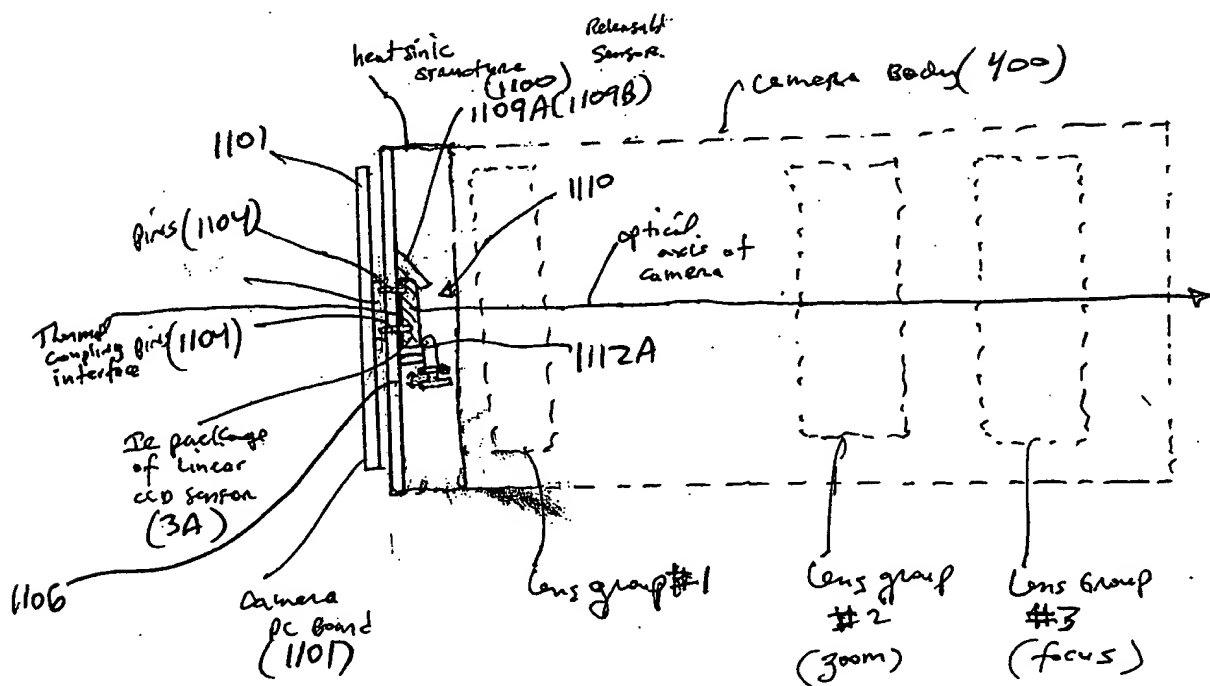 heatsink
structure
(1100)
Releasable
Sensors.
1109A(1109B)
camera Body(400)
1101
1110
pins(1104)
optical
axis of
camera
Thermal
coupling
interface
pins(1104)
1112A
IC package
of Linear
CCD sensor
(3A)
1106
camera
PC Board
(1101)
Lens group #1
Lens group
#2
(zoom)
Lens Group
#3
(focus)